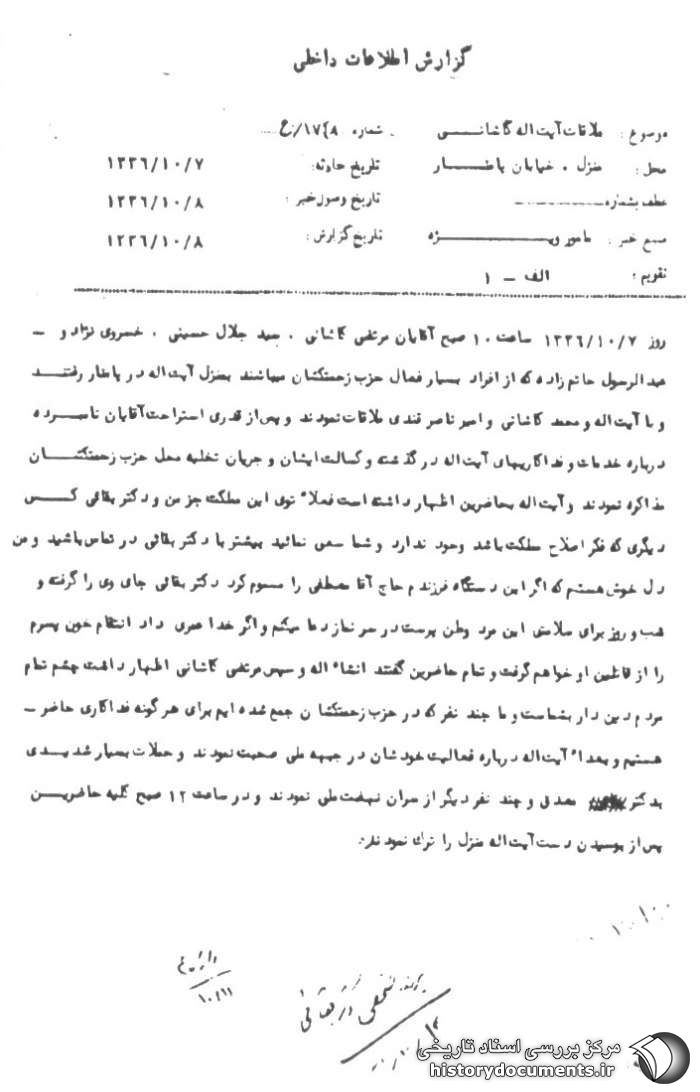 گزارش اطلاعات داخلی
موضوع : ملاقات آیت اله کاشانی شماره ۱۷۴۸/
محل : منزل ـ خیابان پامنار تاریخ حادثه: ۱۳۳۶/۱۰/۷
عطف بشماره تاریخ وصول خبر : ۱۳۳۶/۱۰/۸
منبع خبر : مامور ویژه تاریخ گزارش : ۱۳۳۶/۱۰/۸
تقویم : الف - ۱
روز ۱۳۳۶/۱۰/۷ ساعت ۱۰ صبح آقایان مرتضی کاشانی ـ سید جلال حسینی ـ خسروی نژاد و -
عبدالرسول حاتم زاده که از افراد بسیار فعال حزب زحمتکشان میباشند بمنزل آیت اله در پامنار رفتند
و با آیت اله و محمد کاشانی و امیر ناصر قندی ملاقات نمودند و پس از قدری استراحت آقایان نامبرده
درباره خدمات و فداکاریهای آیت اله در گذشته و کسالت ایشان و جریان تخلیه محل حزب زحمتکشان
مذاکره نمودند و آیت اله بحاضرین اظهار داشته است فعلاً توی این مملکت جز من و دکتر بقائی کس
دیگری که فکر اصلاح مملکت باشد وجود ندارد و شما سعی نمائید بیشتر با دکتر بقائی در تماس باشید و من
دل خوش هستم که اگر این دستگاه فرزندم حاج آقا مصطفی را مسموم کرد دکتر بقائی جای وی را گرفته و
شب و روز برای سلامتی این مرد وطن پرست در سر نماز دعا میکنم و اگر خدا عمری داد انتقام خون پسرم
را از قاتلین او خواهم گرفت و تمام حاضرین گفتند انشاء اله و سپس مرتضی کاشانی اظهار داشت چشم تمام
مردم دین دار بشماست و ما چند نفر که در حزب زحمتکشان جمع شده ایم برای هر گونه فداکاری حاضر -
هستیم و بعداً آیت اله درباره فعالیت خودشان در جبهه ملی صحبت نمودند و حملات بسیار شدیدی
بدکتر مصدق و چند نفر دیگر از سران نهضت ملی نمودند و در ساعت ۱۲ صبح کلیه حاضرین
پس از بوسیدن دست آیت اله منزل را ترک نمودند.
۱۰/۱۱
مرکز بررسی اسناد تاریخی
historydocuments.ir